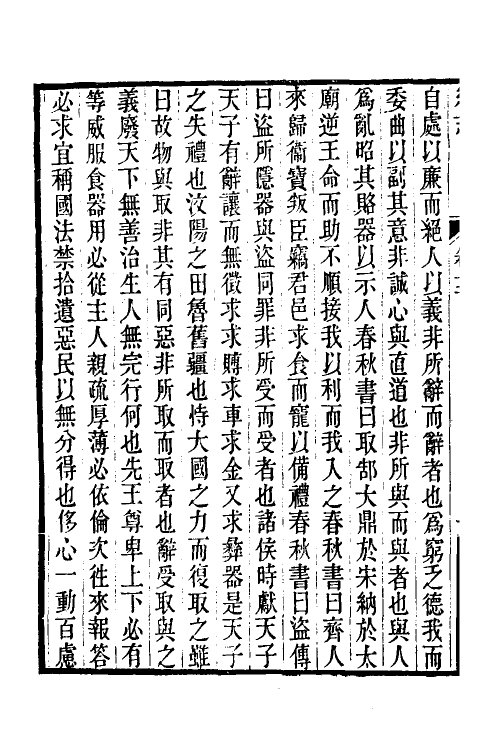 自處以廉而絕人以義非所辭而辭者也為窮乏德我而
委曲以副其意非誠心與直道也非所與而與者也與人
為亂昭其賂器以示人春秋書曰取郜大鼎於宋納於太
廟逆王命而助不順接我以利而我入之春秋書曰齊人
來歸衞寶叛臣竊君邑求食而寵以備禮春秋書曰盜傳
曰盜所隱器與盜同罪非所受而受者也諸侯時獻天子
天子有辭讓而無徵求求賻求車求金又求彝器是天子
之失禮也汶陽之田魯舊疆也恃大國之力而復取之雖
曰故物與取非其有同惡非所取而取者也辭受取與之
義廢天下無善治生人無完行何也先王尊卑上下必有
等威服食器用必從主人親疏厚薄必依倫次徃來報答
必求宜稱國法禁拾遺惡民以無分得也侈心一動百慮